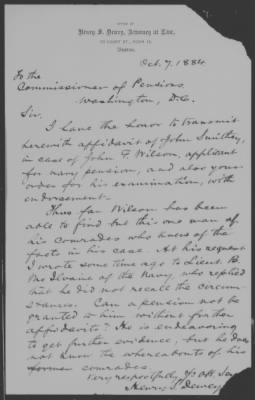 OFFICE OF
Henry S. Dewey, Attorney at Law,
Boston.
Oct. 7, 1884
To the
Commissioner of Pensions
Washington, D.C.
Sir.
I have the honor to transmit
herewith affidavit of John Smithey,
in case of John F Wilson, applicant
for navy pension, and also your
order for his examination, with
endorsement.
Thus far Wilson has been
able to find but this one man of
his comrades who knew of the
facts in his case. At his request
I wrote some time ago to Lieut. B.
McIlvaine of the Navy, who replied
that he did not recall the circum-
stances. Can a pension not be
granted to him without further
affidavits? He is endeavoring
to get further evidence, but he does
not know the whereabouts of his
former comrades.
Very respectfully, Yr Obt Serv
Henry S. Dewey